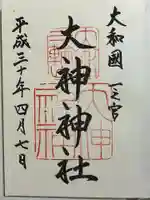 大和國一之宮
大神神社
平成三十年四月七日